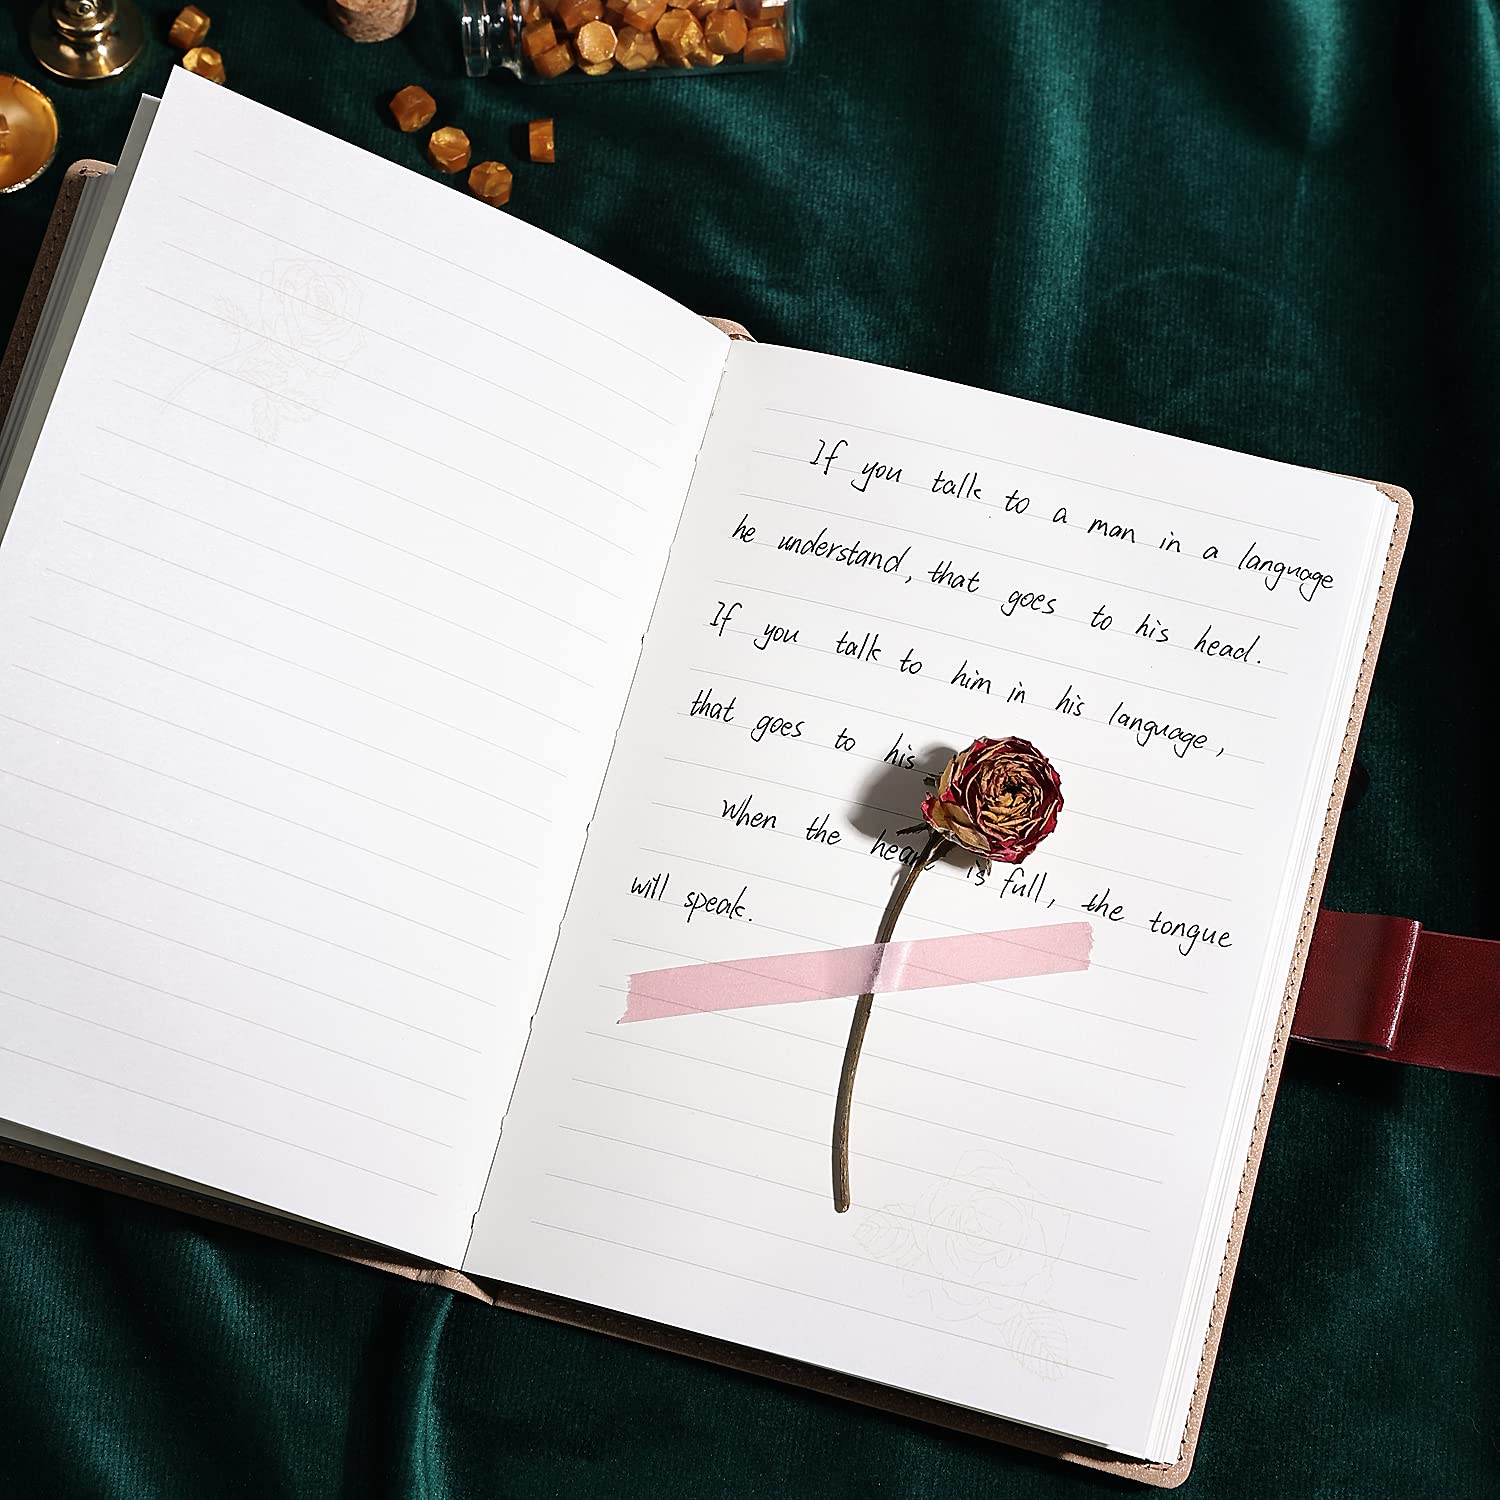 If you talk to a man in a language
he understand, that goes to his head.
If you talk to him in his language,
that goes to his
When the heart is full, the tongue
will speak.